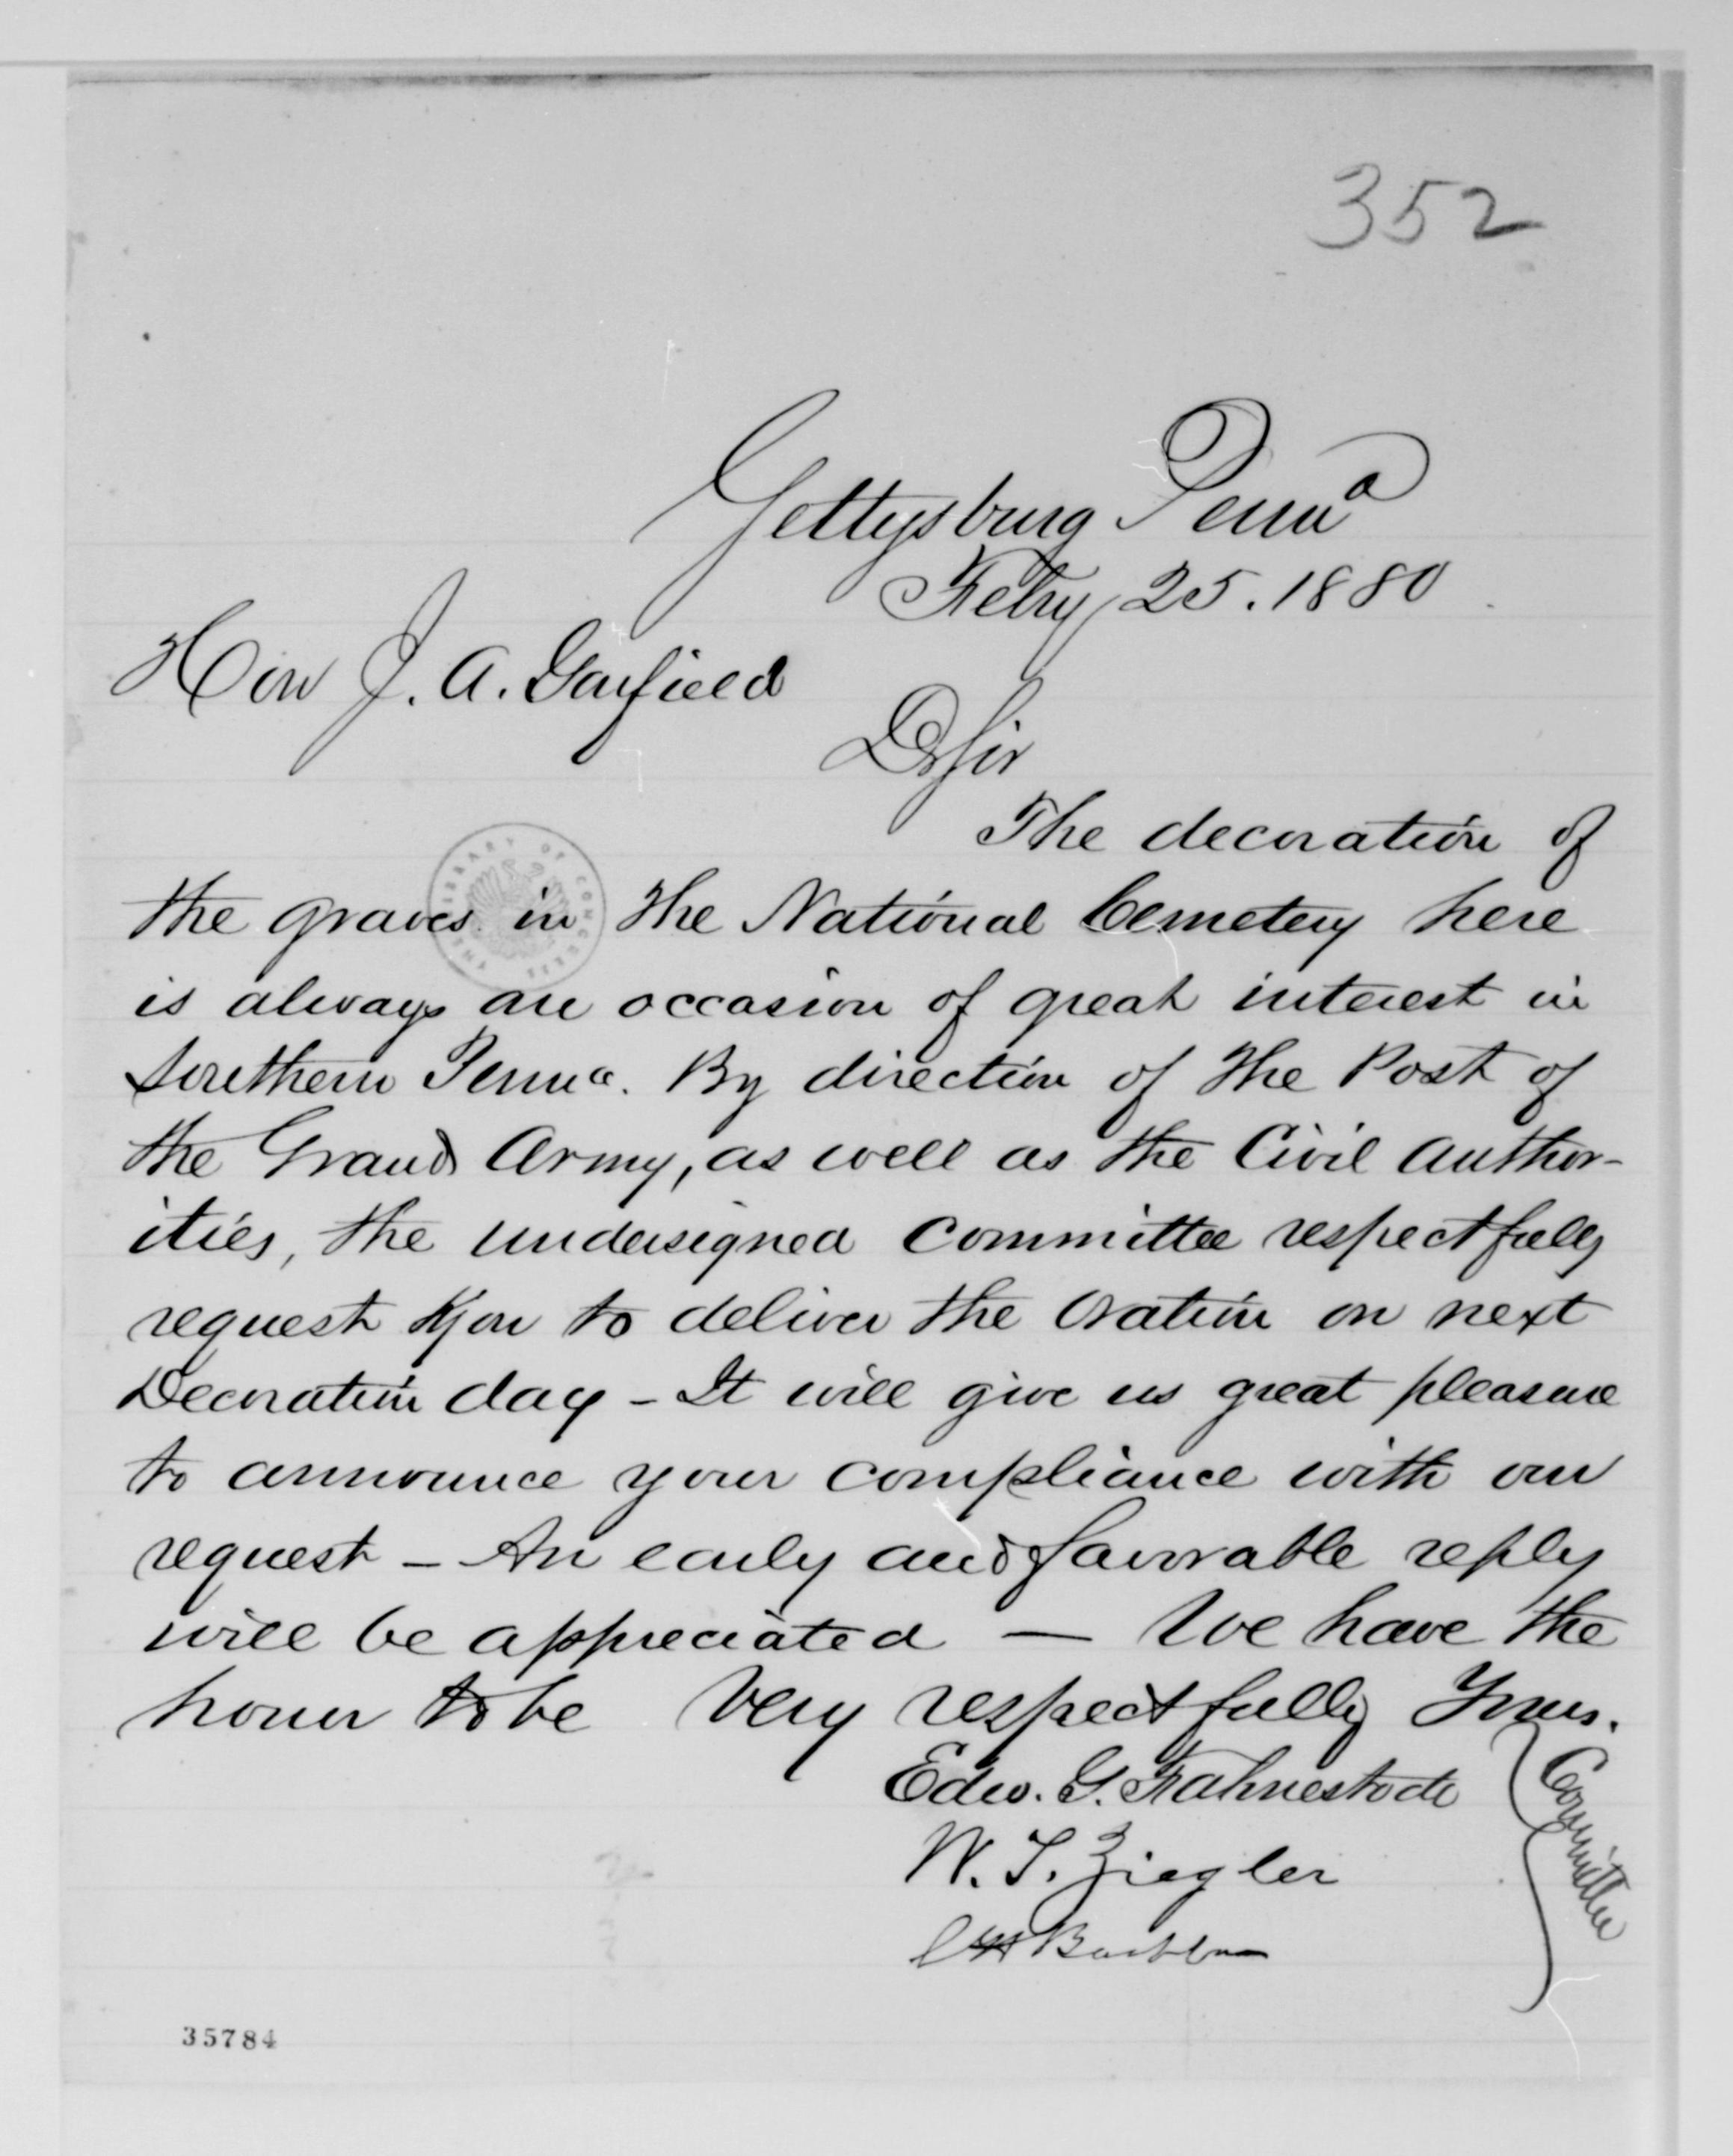 352
Gettysburg Penna
Feby 25. 1880
Hon J. A. Garfield
Dr Sir
The decoration of
the graves in the National Cemetery here
is always an occasion of great interest in
Southern Penna. By direction of the Post of
the Grand Army, as well as the Civil Author-
ities, the undersigned Committee respectfully
request you to deliver the Oration on next
Decoration day - It will give us great pleasure
to announce your compliance with our
request - An early and favorable reply
will be appreciated — We have the
honor to be Very respectfully Yours.
Edw. G. Fahnestock
W. T. Ziegler
Committee
THE LIBRARY OF CONGRESS
35784